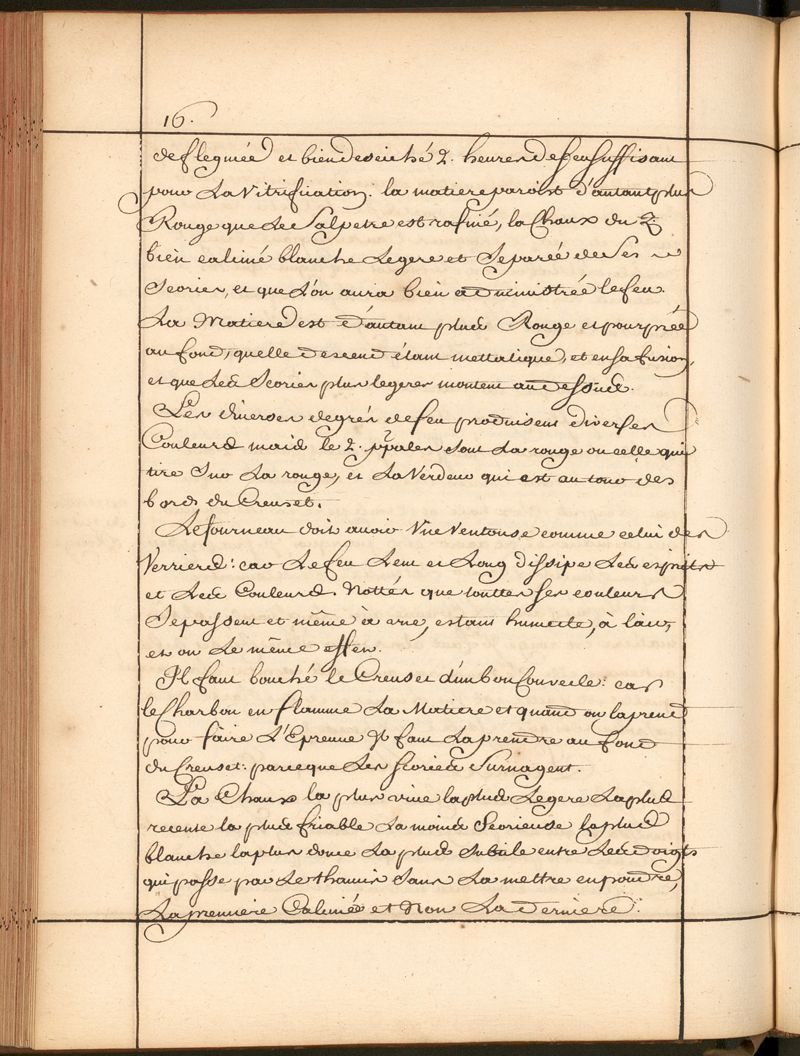 16.
deflegmée et bien deseiché 2. heures de feu suffisant
pour La Vitrification. la matiere paroist d'autant plus
Rouge que Le Salpetre est rafiné, la Chaux du ♃
bien calciné blanche Legere et Separée de Ses
Scories, et que L'on aura bien administrée le feu.
La Matiere est d'autant plus Rouge et pourprée
au fond, quelle descend étant mettalique, et en sa fusion,
et que Les Scories plus legeres montent au dessus.
Les diverses degrés de feu produisent diverses
Couleurs mais le 2. ppales sont La rouge ou celle qui
tire Sur La rouge, et La Verdeur qui est au tour des
bords du Creuset.
Le fourneau doit avoir Une Ventouse comme celui des
Verriers: car Le feu Lent et Long dissipe Les esprits
et Les Couleurs. Nottés que touttes ses couleurs
Se passent et même à estant humecté, à l'air,
et on Le même
Il faut bouché le Creuset d'un bon Couvercle: car
le Charbon enflamme La Matiere et quand on la prend
pour faire L'Epreuve Il faut La prendre au fond
du Creuset: parceque Les scories Surnagent.
La Chaux la plus vive la plus Legere La plus
recente la plus friable La moins Scorieuse la plus
blanche la plus douce La plus Subtile entre Les doigts
qui passe par Le thamis Sans La mettre en poudre,
La premiere Calcinée et Non La derniere.